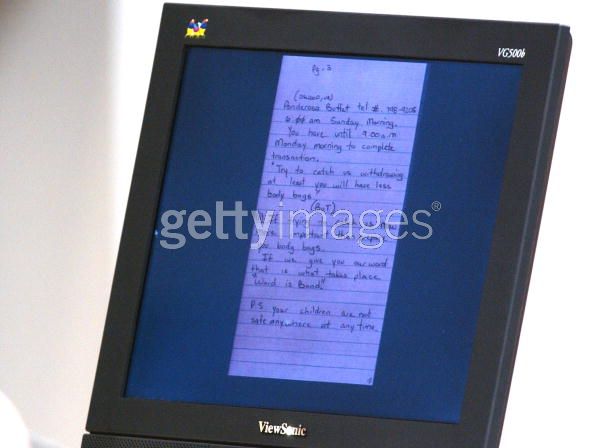 VG500b
Pg. 3
Ponderosa Buffet tel #.
am Sunday Morning.
You have until 9:00 a.m
Monday morning to complete
transaction.
"Try to catch us withdrawing
at least you will have less
body bags"
(BuT)
gettyimages®
If trying to catch us now
more important than
body bags.
If we give you our word
that is what takes place
"Word is Bond."
P.S your children are not
safe anywhere at any time
ViewSonic